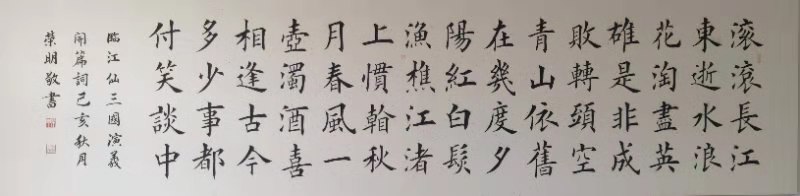 滚滾長江
東逝水浪
花淘盡英
雄是非成
敗轉頭空
青山依舊
在幾度夕
陽紅白髮
漁樵江渚
上慣翰秋
月春風一
壺濁酒喜
相逢古今
多少事都
付笑談中
臨江仙三國演義
開篇詞己亥秋月
榮明敬書